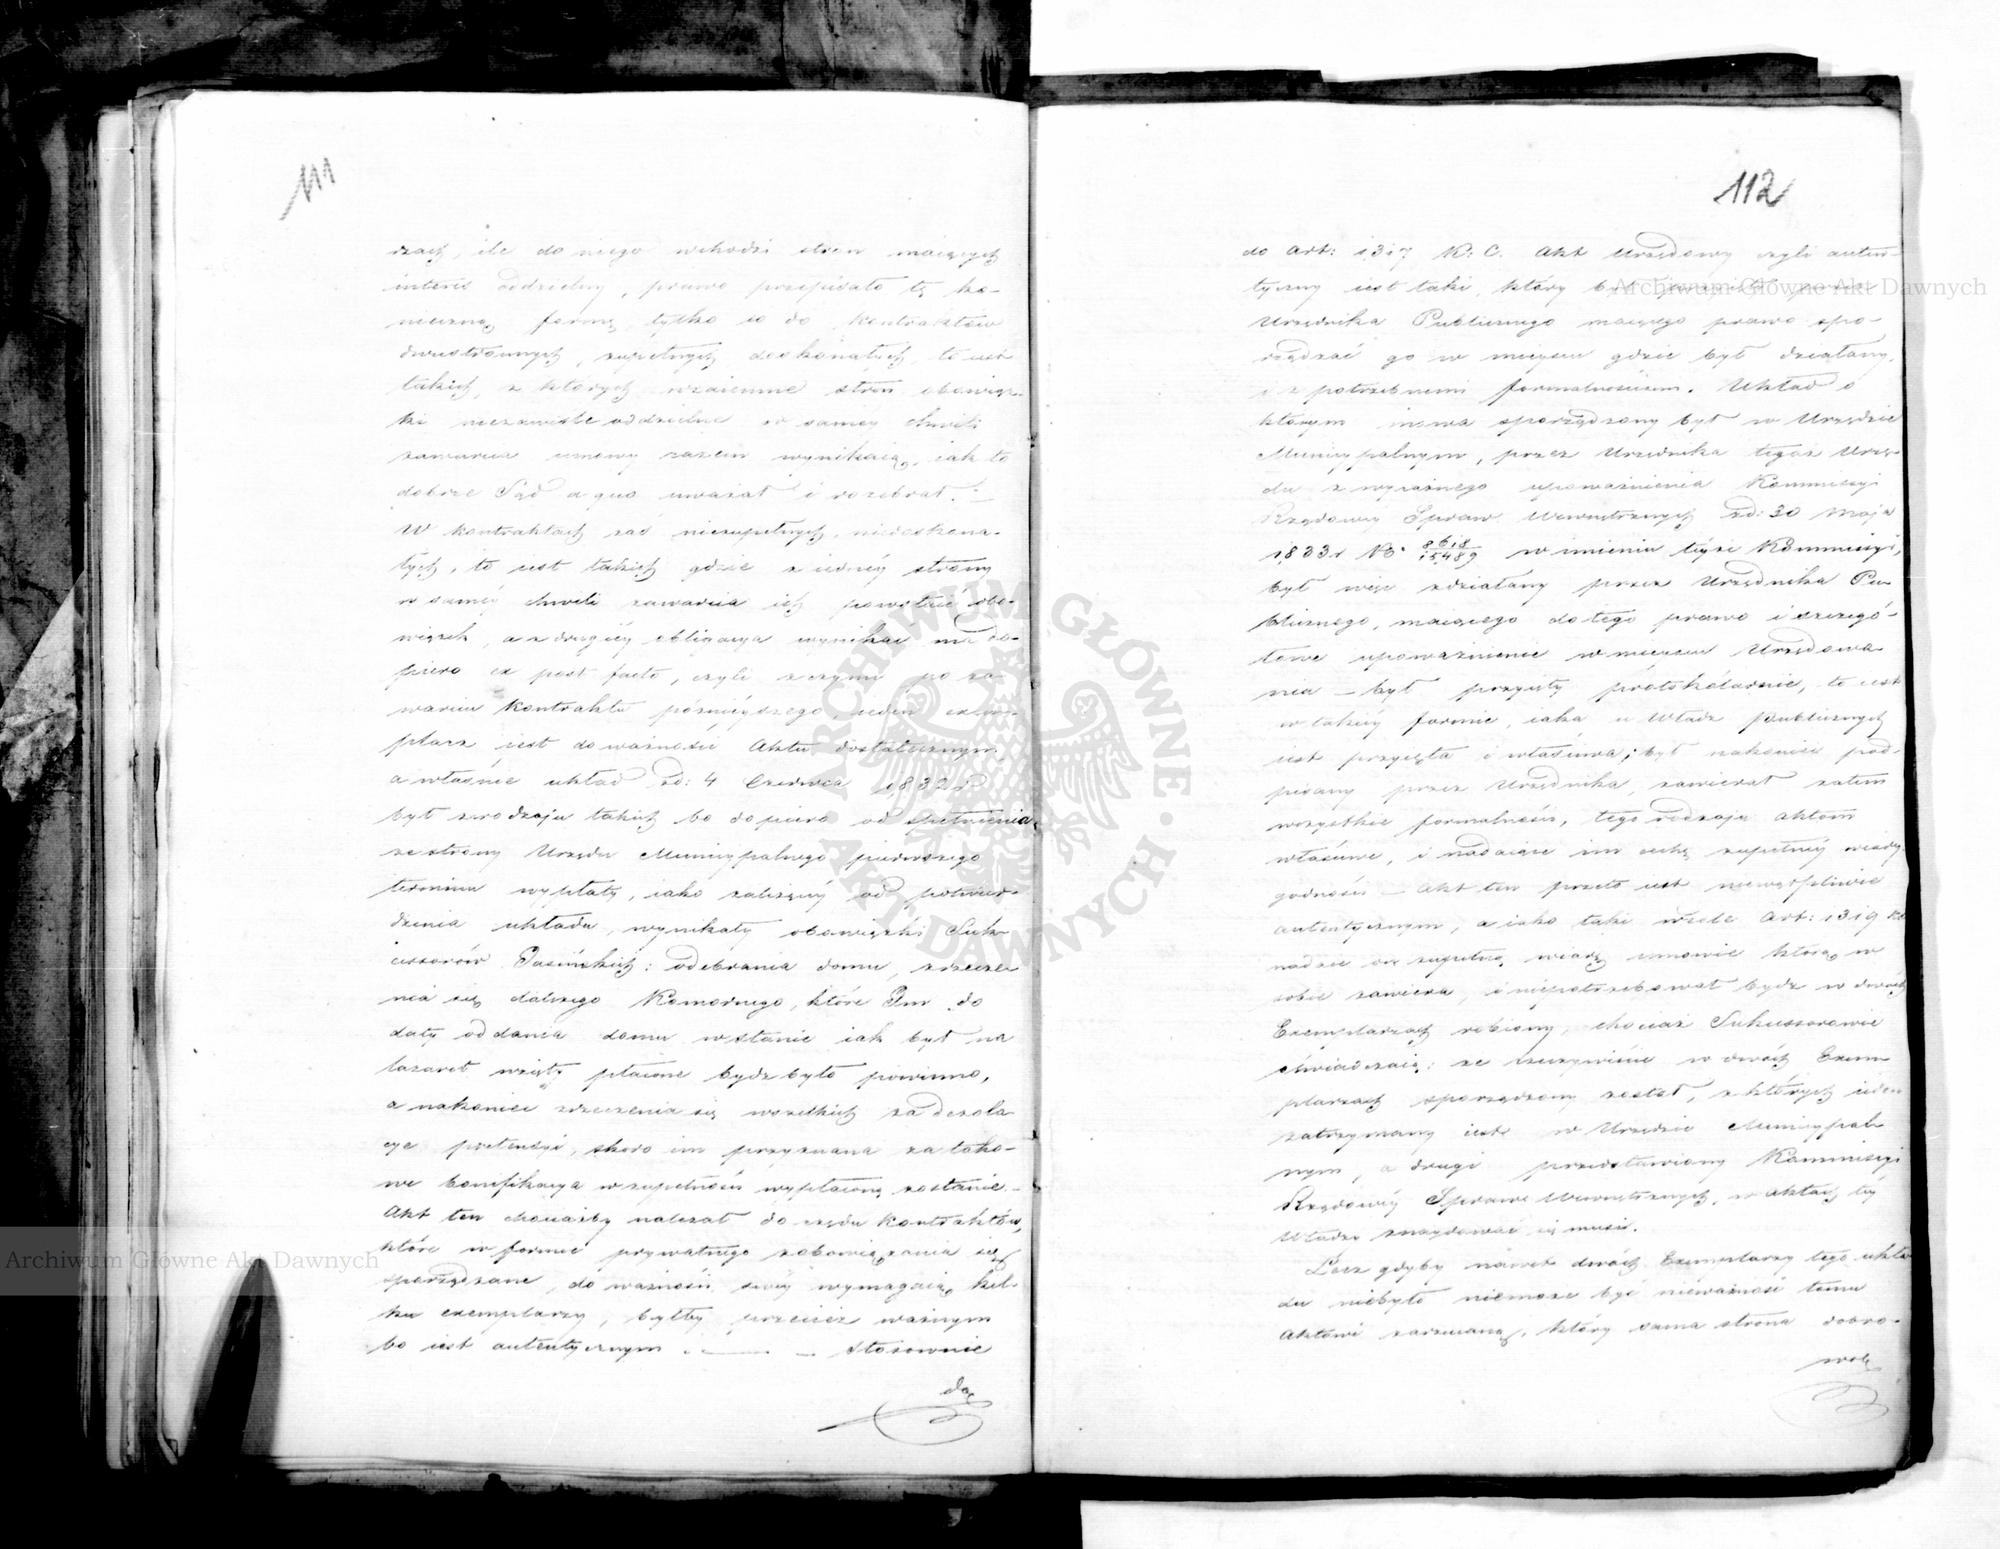 111
rzach, ile do niego wchodzi stron maiących
interes oddzielny, prawo przepisało tę ko-
nieczną formę tylko co do kontraktów
dwustronnych, zupełnych doskonałych, to iest
takich, z których wzaiemne stron obowiąz-
ki niezawisłe oddzielne w samey chwili
zawarcia umowy razem wynikaią, iak to
dobrze Sąd a quo uważał i rozebrał. –
W kontraktach zaś niezupełnych, niedoskona-
łych, to iest takich gdzie z iedney strony
w samey chwili zawarcia ich powstaie obo-
wiązek, a z drugiey obligacya wynikać ma do-
piero ex post facto, czyli z czynu po za-
warciu kontraktu poźnieyszego, ieden exem-
plarz iest do ważności Aktu dostatecznym,
a właśnie układ zd: 4 Czerwca 1832 r
był z rodzaju takich bo dopiero od spełnienia
ze strony Urzędu Municypalnego pierwszego
terminu wypłaty, iako zależący od potwier-
dzenia układu, wynikały obowiązki Suk-
cessorów Jasińskich: odebrania domu, zrzecze-
nia się dalszego Komornego, które Im do
daty oddania domu w stanie iak był na
lazaret wzięty płacone bydź było powinno,
a nakoniec zrzeczenia się wszelkich za dezola-
cye pretensyi, skoro im przyznana za tako-
we bonifikacya w zupełności wypłaconą zostanie. –
Akt ten chociażby należał do rzędu kontraktów,
które w formie prywatnego zobowiązania się
sporządzane, do ważności swey wymagaią kil-
ku exemplarzy, byłby przecież ważnym
bo iest autentycznym . — – Stosownie
do
112
do Art: 1317 K: C. Akt Urzędowy czyli auten-
tyczny iest taki, który był przyięty przez
Urzędnika Publicznego maiącego prawo spo-
rządzać go w mieyscu gdzie był działany,
i z potrzebnemi formalnościami. Układ o
którym mowa sporządzony był w Urzędzie
Municypalnym, przez Urzędnika tegoż Urzę-
du z wyraźnego upoważnienia Kommissyi
Rządowey Spraw Wewnętrznych zd: 30 Maja
1833 r No 8618/15489 w imieniu teyże Kommissyi,
był więc zdziałany przez Urzędnika Pu-
blicznego, maiącego do tego prawo i szczegó-
łowe upoważnienie w mieyscu Urzędowa-
nia – był przyięty protokólarnie, to iest
w takiey formie, iaka u Władz publicznych
iest przyięta i właściwa; był nakoniec pod-
pisany przez Urzędnika, zawierał zatem
wszystkie formalności, tego rodzaju aktom
właściwe, i nadaiące im cechę zupełney wiary-
godności – Akt ten przeto iest niewątpliwie
autentycznym, a iako taki wedle Art: 1319 KC
nadaie on zupełną wiarę umowie którą w
sobie zawiera, i niepotrzebował bydź w dwóch
Exemplarzach robiony, chociaż Sukcessorowie
oświadczaią: że rzeczywiście w dwóch Exem-
plarzach sporządzony został, z których ieden
zatrzymany iest w Urzędzie Municypal-
nym, a drugi przedstawiony Kommissyi
Rządowey Spraw Wewnętrznych, w aktach tey
Władzy znaydować się musi.
Lecz gdyby nawet dwóch Exemplarzy tego ukła-
du niebyło niemoże być nieważność temu
Aktowi zarzucaną, który sama strona dobro-
wol
Archiwum Główne Akt Dawnych
Archiwum Główne Akt Dawnych
ARCHIWUM GŁÓWNE · AKT DAWNYCH ·